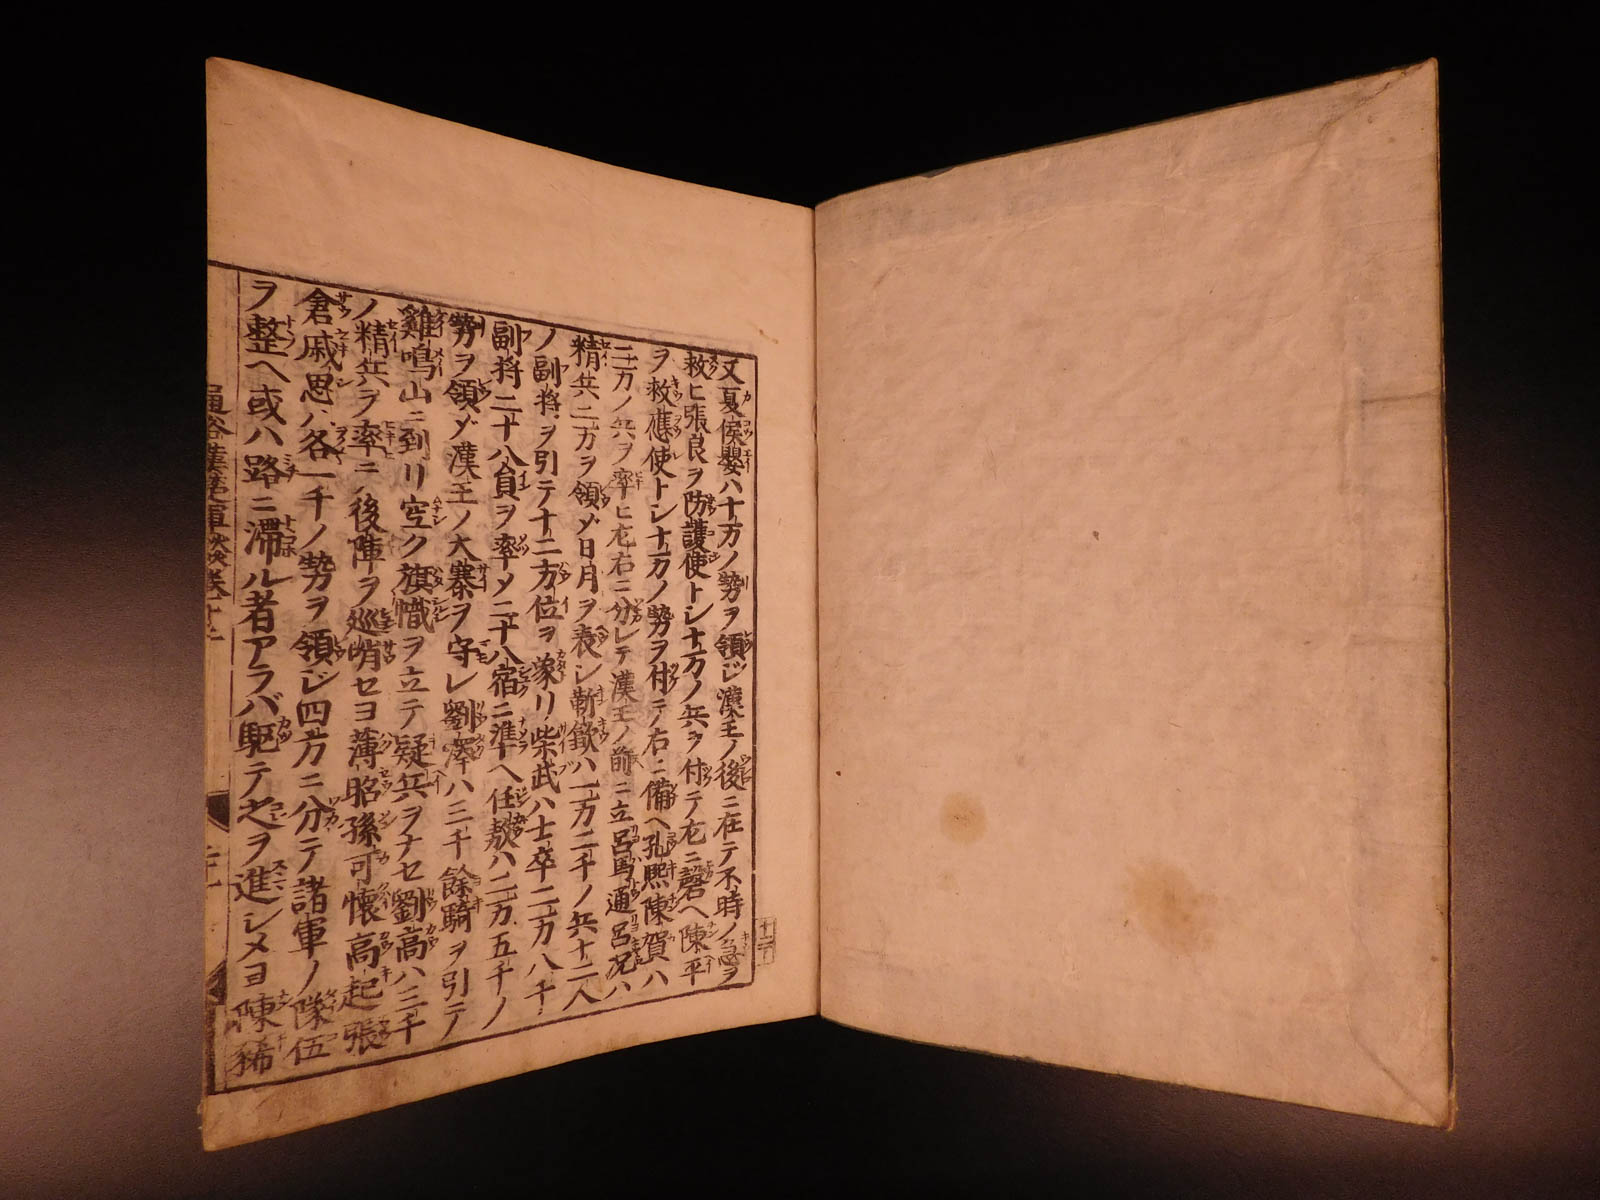 又夏侯嬰ハ十万ノ勢ヲ領ジ漢王ノ後ニ在テ不時ノ急ヲ
救ヒ張良ヲ防護使トシ十万ノ兵ヲ付テ左ニ磬ヘ陳平
ヲ救應使トシ十万ノ勢ヲ付テ右ニ備ヘ孔熙陳賀ハ
二万ノ兵ヲ率ヒ左右ニ分レテ漢王ノ前ニ立呂馬通呂况ハ
精兵二万ヲ領メ日月ヲ表シ靳歙ハ一万二千ノ兵十二人
ノ副将ヲ引テ十二方位ヲ象リ柴武ハ士卒二万八千
副将二十八員ヲ率メ二十八宿ニ準ヘ任敖ハ二万五千ノ
勢ヲ領メ漢王ノ大寨ヲ守レ劉澤ハ三千餘騎ヲ引テ
雞鳴山ニ到リ空ク旗幟ヲ立テ疑兵ヲナセ劉高ハ三千
ノ精兵ヲ率ニ後陣ヲ巡哨セヨ薄昭孫可懷高起張
倉戚思ハ各一千ノ勢ヲ領ジ四方ニ分テ諸軍ノ隊伍
ヲ整ヘ或ハ路ニ滞ル者アラバ駆テ之ヲ進シメヨ陳豨
通俗漢楚軍談卷十二